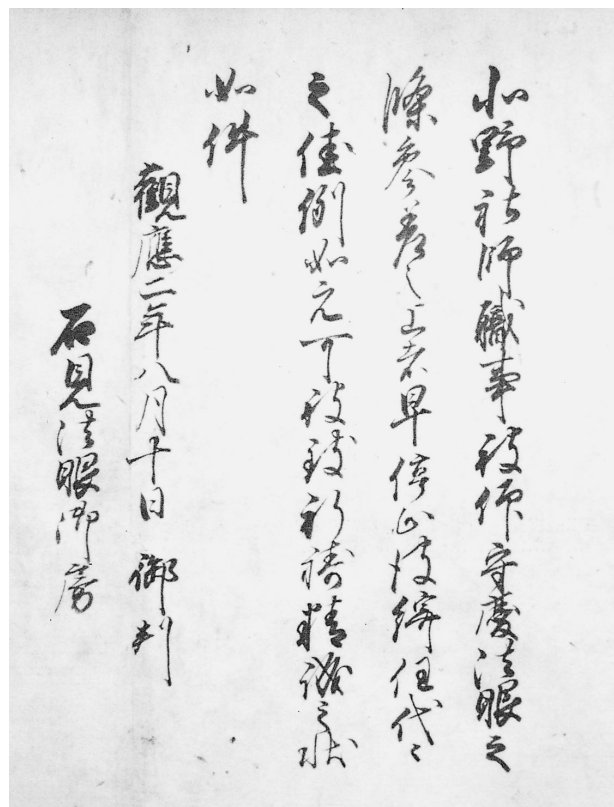 北野社師職事被仰守慶法眼之
條参差之上者早停止彼綺任代々
之佳例如元可被致祈祷精誠之状
如件
觀應二年八月十日 御判
石見法眼御房